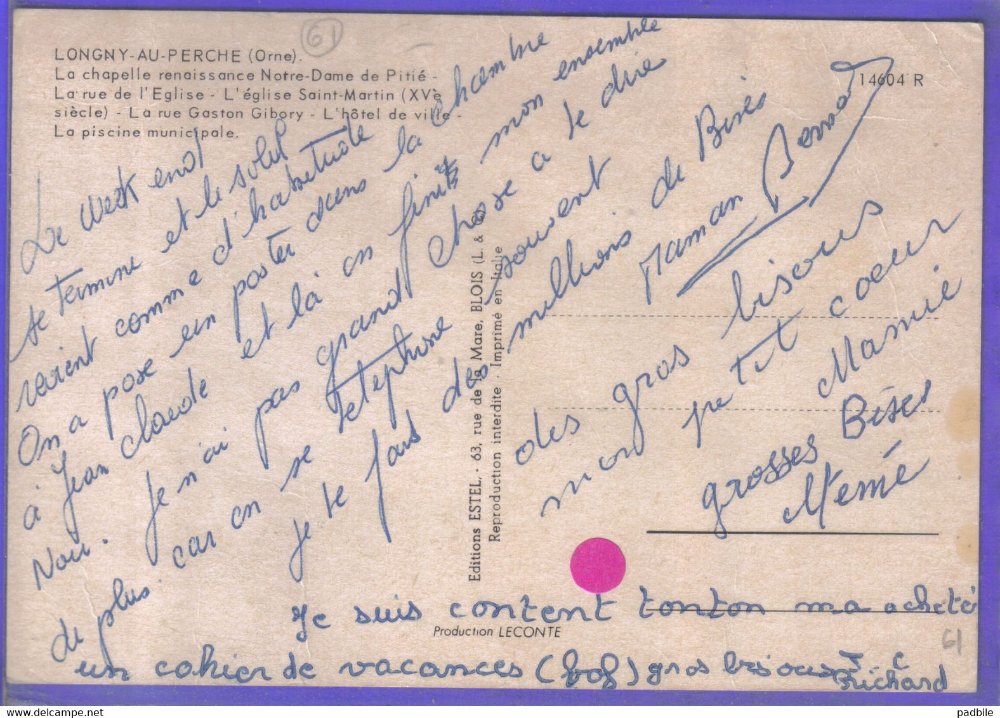 61
LONGNY-AU-PERCHE (Orne).
La chapelle renaissance Notre-Dame de Pitié -
La rue de l'Eglise - L'église Saint-Martin (XVe
siècle) - La rue Gaston Gibory - L'hôtel de ville -
La piscine municipale.
14604 R
Le week end
se termine et le soleil
revient comme d'habitude
On a posé un poster dans la chambre
à Jean claude et là on finit mon ensemble
Noir. Je n'ai pas grand chose a te dire
de plus car on se telephone souvent
je te fais des millions de Bises
Maman Bernard
des gros bisous
mon petit coeur
Mamie
grosses Bises
Memé
Editions ESTEL - 63, rue de la Mare, BLOIS (L. & C.)
Reproduction interdite - Imprimé en Italie
Je suis content tonton ma acheté
Production LECONTE
61
un cahier de vacances (bof) gros bisous
Richard
padbile